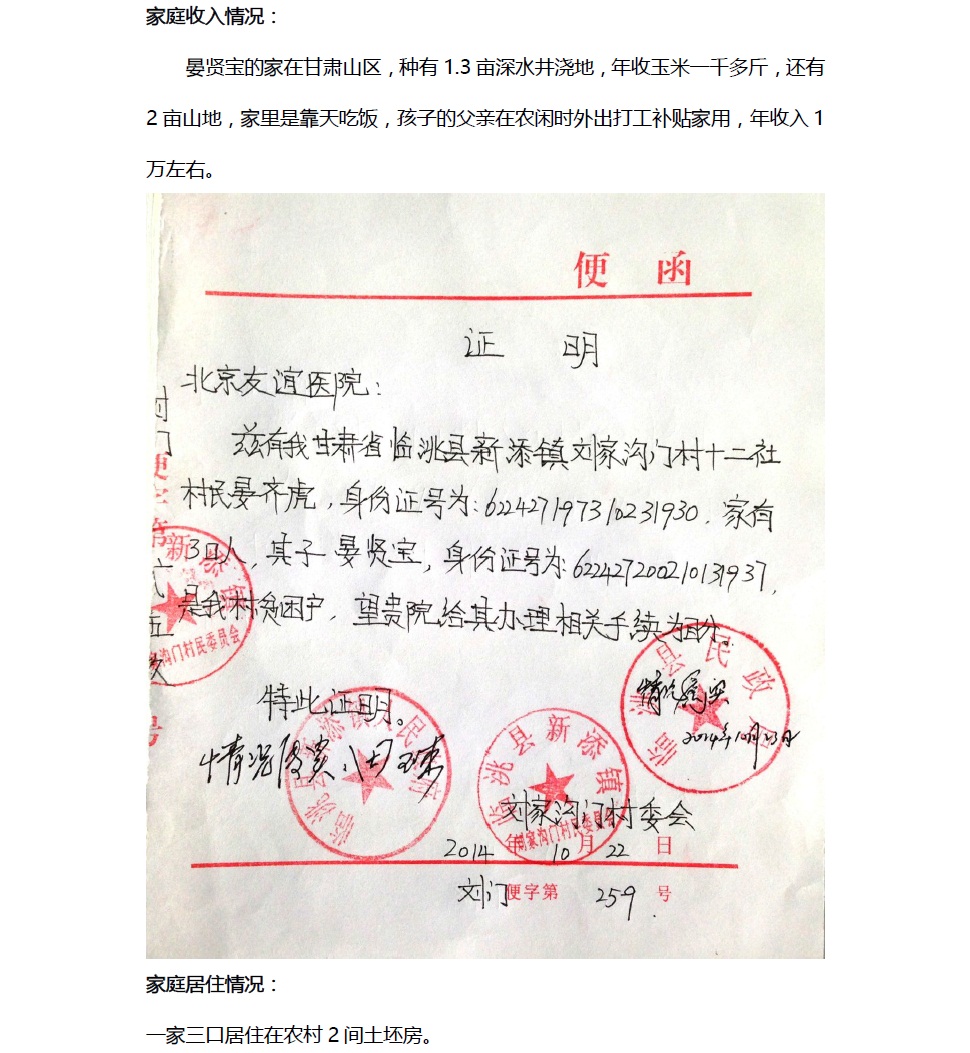 家庭收入情况：
晏贤宝的家在甘肃山区，种有 1.3 亩深水井浇地，年收玉米一千多斤，还有
2 亩山地，家里是靠天吃饭，孩子的父亲在农闲时外出打工补贴家用，年收入 1
万左右。
便 函
证 明
北京友谊医院：
兹有我甘肃省临洮县新添镇刘家沟门村十二社
村民晏齐虎，身份证号为：622427197310231930．家有
3口人，其子晏贤宝，身份证号为：622427200210131937，
是我村贫困户，望贵院给其办理相关手续为盼。
特此证明。
情况属实
2014年10月23日
情况属实
刘家沟门村委会
2014 年 10 月 22 日
刘门便字第 259 号
临洮县新添镇
刘家沟门村民委员会
临洮县新添镇人民政府
临洮县民政局
新添镇
沟门村民委员会
家庭居住情况：
一家三口居住在农村 2 间土坯房。